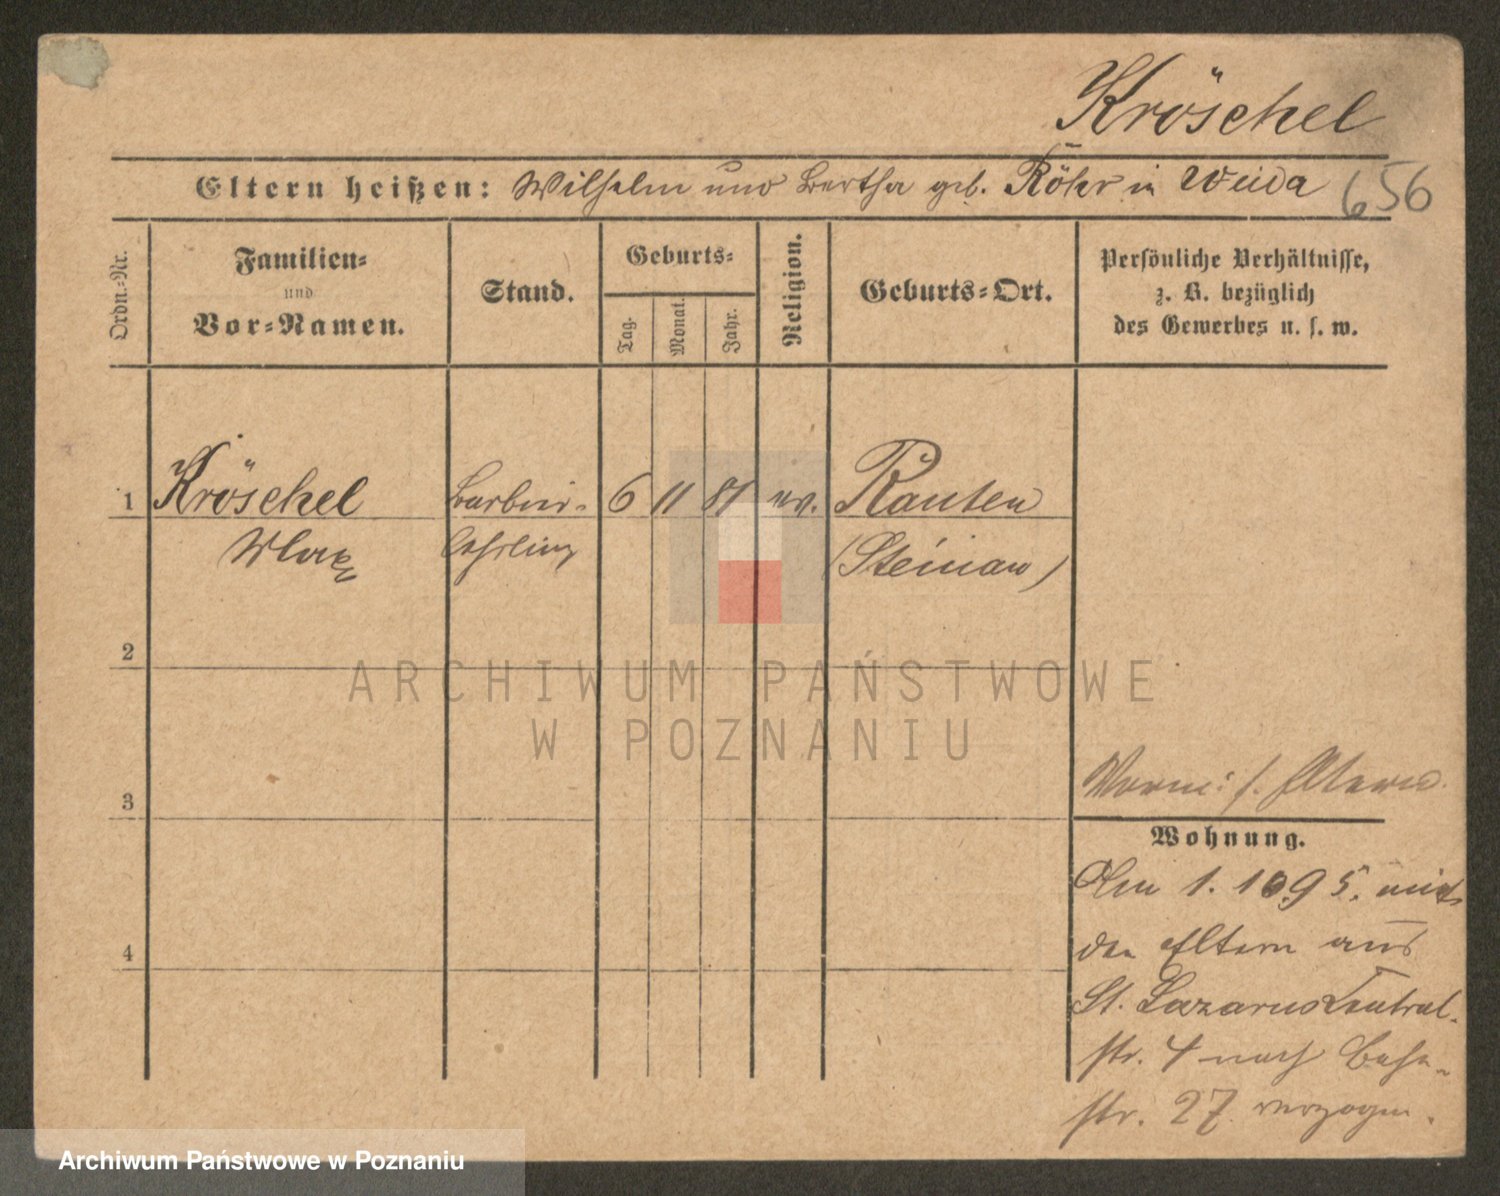 Kröschel
Eltern heißen: Wilhelm und Bertha geb. Röhr in Wilda 656
Ordn.-Nr.
Familien-
und
Vor-Namen.
Stand.
Geburts-
Tag.
Monat.
Jahr.
Religion.
Geburts-Ort.
Persönliche Verhältnisse,
z. B. bezüglich
des Gewerbes u. s. w.
1 Kröschel Barbier- 6 11 81 ev. Rauten
Max lehrling (Steinau)
2
3
4
s. Eltern.
Wohnung.
Am 1. 10 95. mit
den Eltern aus
St. Lazarus Central-
str. 4 nach Bahn-
str. 27 verzogen.
ARCHIWUM PAŃSTWOWE
W POZNANIU
Archiwum Państwowe w Poznaniu